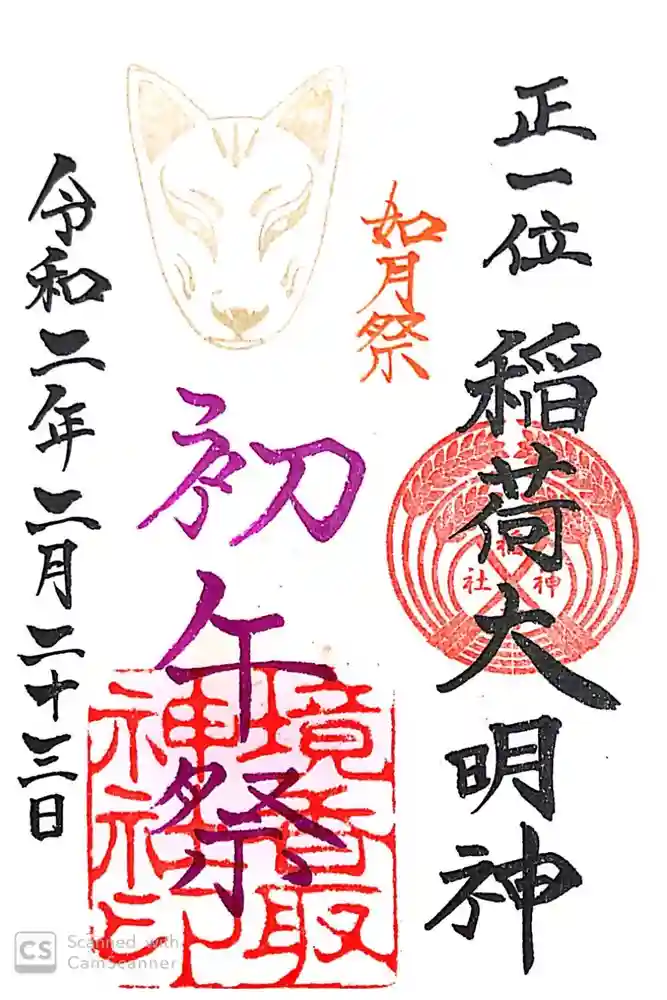 正一位 稲荷大明神
如月祭
初午祭
令和二年二月二十三日
神
社
境香取
神社
印
CS Scanned with
CamScanner